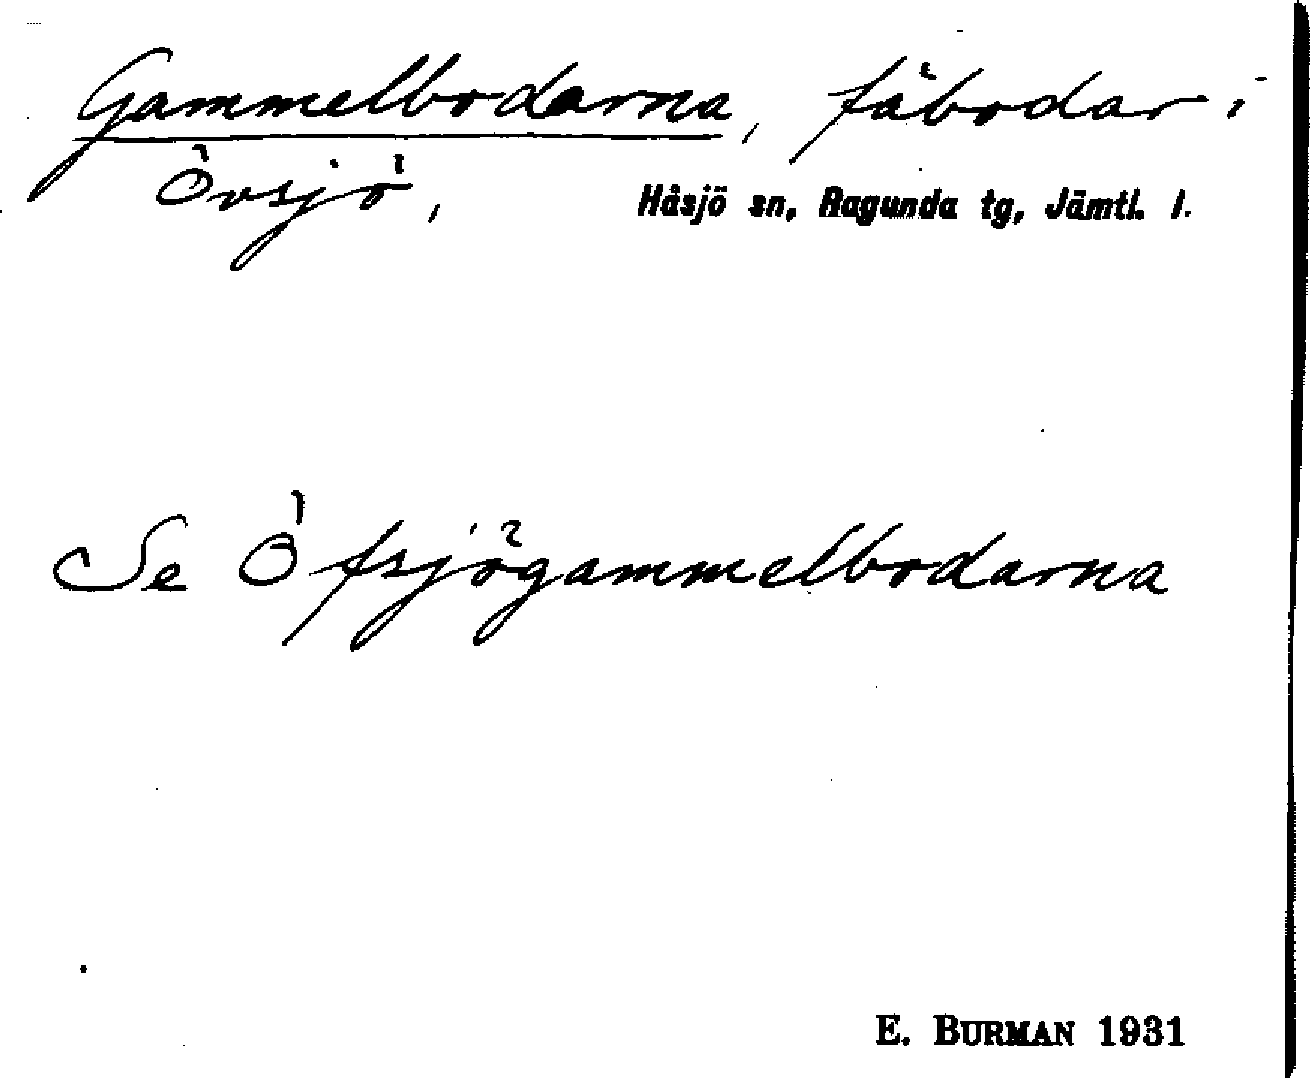 Gammelbodarna, fäbodar i
Övsjö, Håsjö sn, Ragunda tg, Jämtl. l.
Se Öfsjögammelbodarna
E. BURMAN 1931